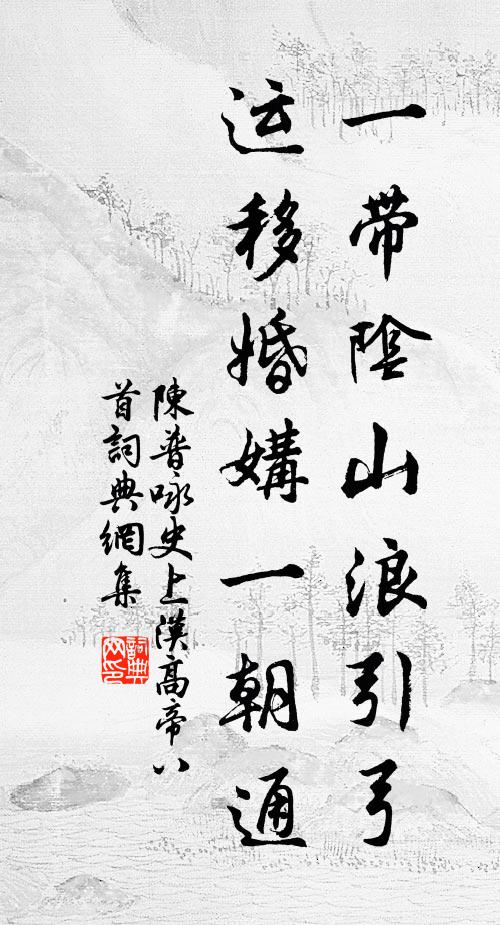 一帶陰山浪引弓
运移婚媾一朝通
陳普咏史上漢高帝八
首詞典網集
詞典
网印